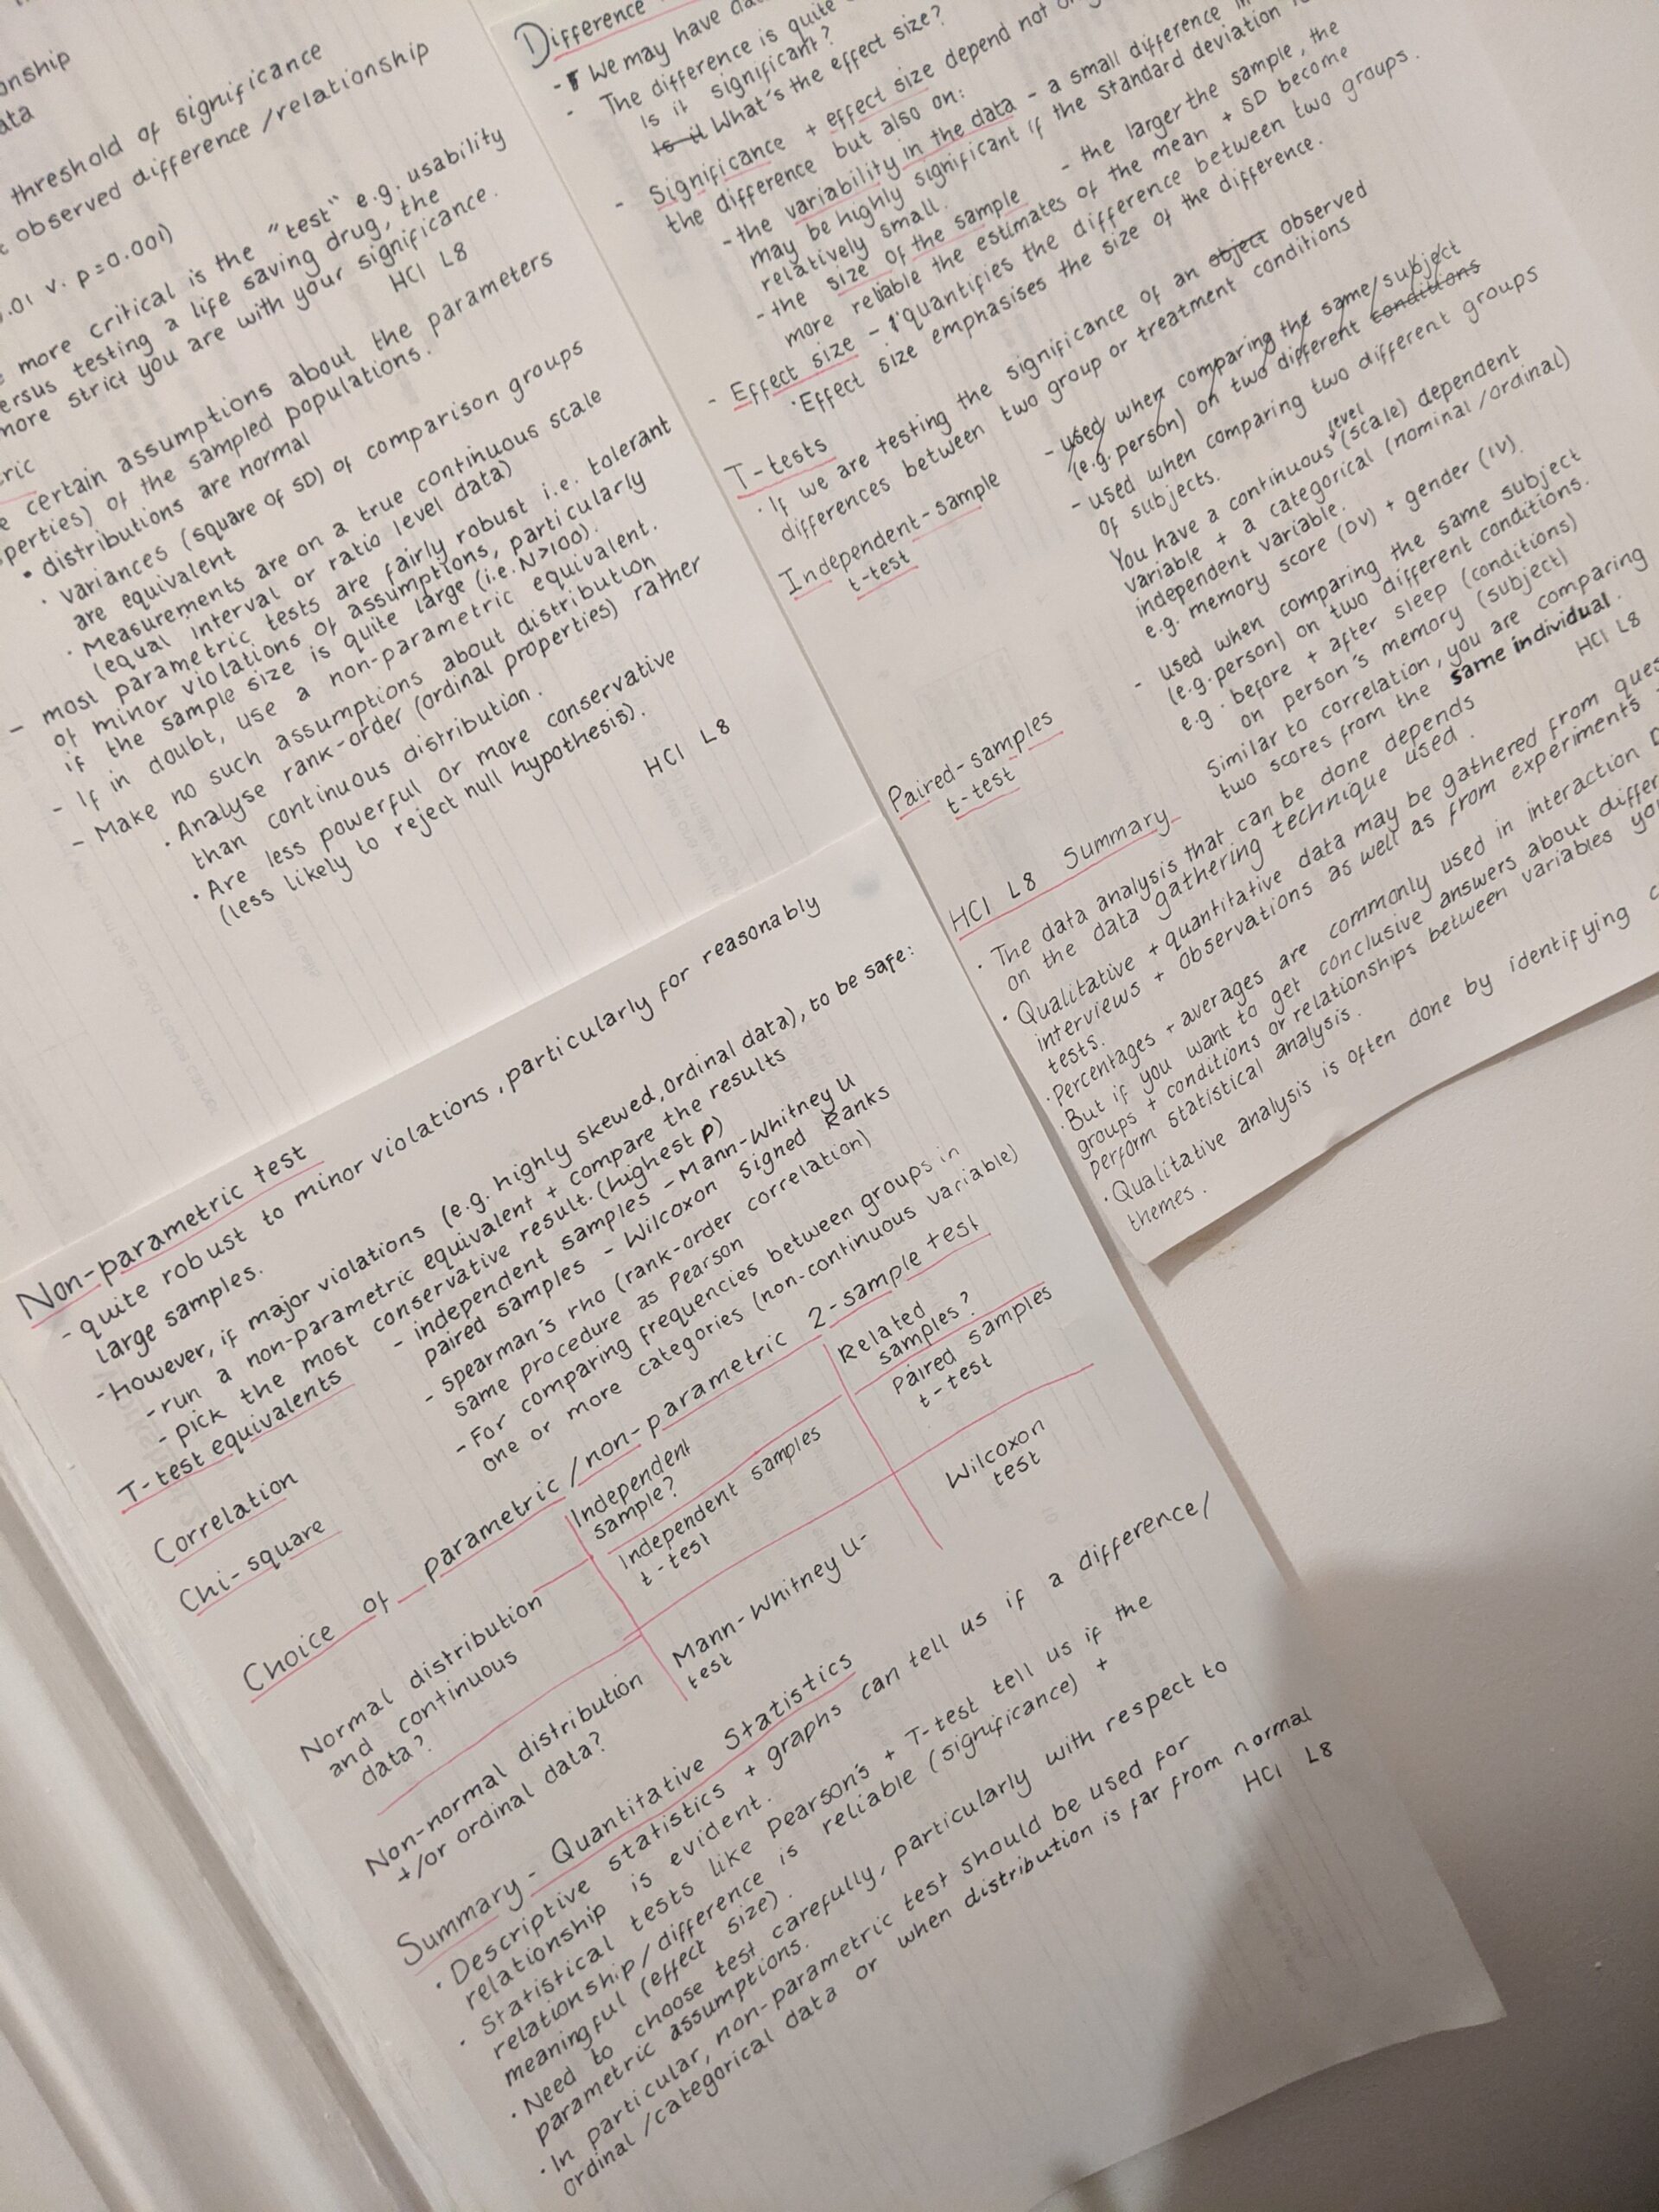 onship
ata
threshold of significance
observed difference/relationship
.01 v. p=0.001)
more critical is the "test" e.g. usability
ersus testing a life saving drug, the
more strict you are with your significance.
HCI L8
ric
certain assumptions about the parameters
perties) of the sampled populations.
• distributions are normal
• variances (square of SD) of comparison groups
are equivalent
• Measurements are on a true continuous scale
(equal interval or ratio level data)
- most parametric tests are fairly robust i.e. tolerant
of minor violations of assumptions, particularly
if the sample size is quite large (i.e. N>100).
- If in doubt, use a non-parametric equivalent.
- Make no such assumptions about distribution
• Analyse rank-order (ordinal properties) rather
than continuous distribution.
• Are less powerful or more conservative
(less likely to reject null hypothesis).
HCI L8
Difference
- We may have da
- The difference is quite
Is it significant?
Is it What's the effect size?
- Significance + effect size depend not
the difference but also on:
- the variability in the data - a small difference
may be highly significant if the standard deviation
relatively small.
- the size of the sample - the larger the sample, the
more reliable the estimates of the mean + SD become
- Effect size - quantifies the difference between two groups.
• Effect size emphasises the size of the difference.
T-tests
• If we are testing the significance of an object observed
differences between two group or treatment conditions
Independent-sample
t-test
- used when comparing the same/subject
(e.g. person) on two different conditions
- used when comparing two different groups
of subjects.
You have a continuous level (scale) dependent
variable + a categorical (nominal/ordinal)
independent variable.
e.g. memory score (DV) + gender (IV).
Paired-samples
t-test
- used when comparing the same subject
(e.g. person) on two different conditions.
e.g. before + after sleep (conditions)
on person's memory (subject)
Similar to correlation, you are comparing
two scores from the same individual.
HCI L8
HCI L8 Summary
• The data analysis that can be done depends
on the data gathering technique used.
• Qualitative + quantitative data may be gathered from ques
interviews + observations as well as from experiments
tests.
• Percentages + averages are commonly used in interaction D
• But if you want to get conclusive answers about differ
groups + conditions or relationships between variables you
perform statistical analysis.
• Qualitative analysis is often done by identifying
themes.
Non-parametric test
- quite robust to minor violations, particularly for reasonably
large samples.
- However, if major violations (e.g. highly skewed, ordinal data), to be safe:
- run a non-parametric equivalent + compare the results
- pick the most conservative result. (highest p)
T-test equivalents - independent samples - Mann-Whitney U
paired samples - Wilcoxon Signed Ranks
Correlation - Spearman's rho (rank-order correlation)
same procedure as Pearson
Chi-square - For comparing frequencies between groups in
one or more categories (non-continuous variable)
Choice of parametric/non-parametric 2-sample test
Independent
sample?
Related
samples?
Normal distribution
and continuous
data?
Independent samples
t-test
Paired samples
t-test
Non-normal distribution
+/or ordinal data?
Mann-Whitney U-
test
Wilcoxon
test
Summary - Quantitative Statistics
• Descriptive statistics + graphs can tell us if a difference/
relationship is evident.
• Statistical tests like Pearson's + T-test tell us if the
relationship/difference is reliable (significance) +
meaningful (effect size).
• Need to choose test carefully, particularly with respect to
parametric assumptions.
• In particular, non-parametric test should be used for
ordinal/categorical data or when distribution is far from normal
HCI L8